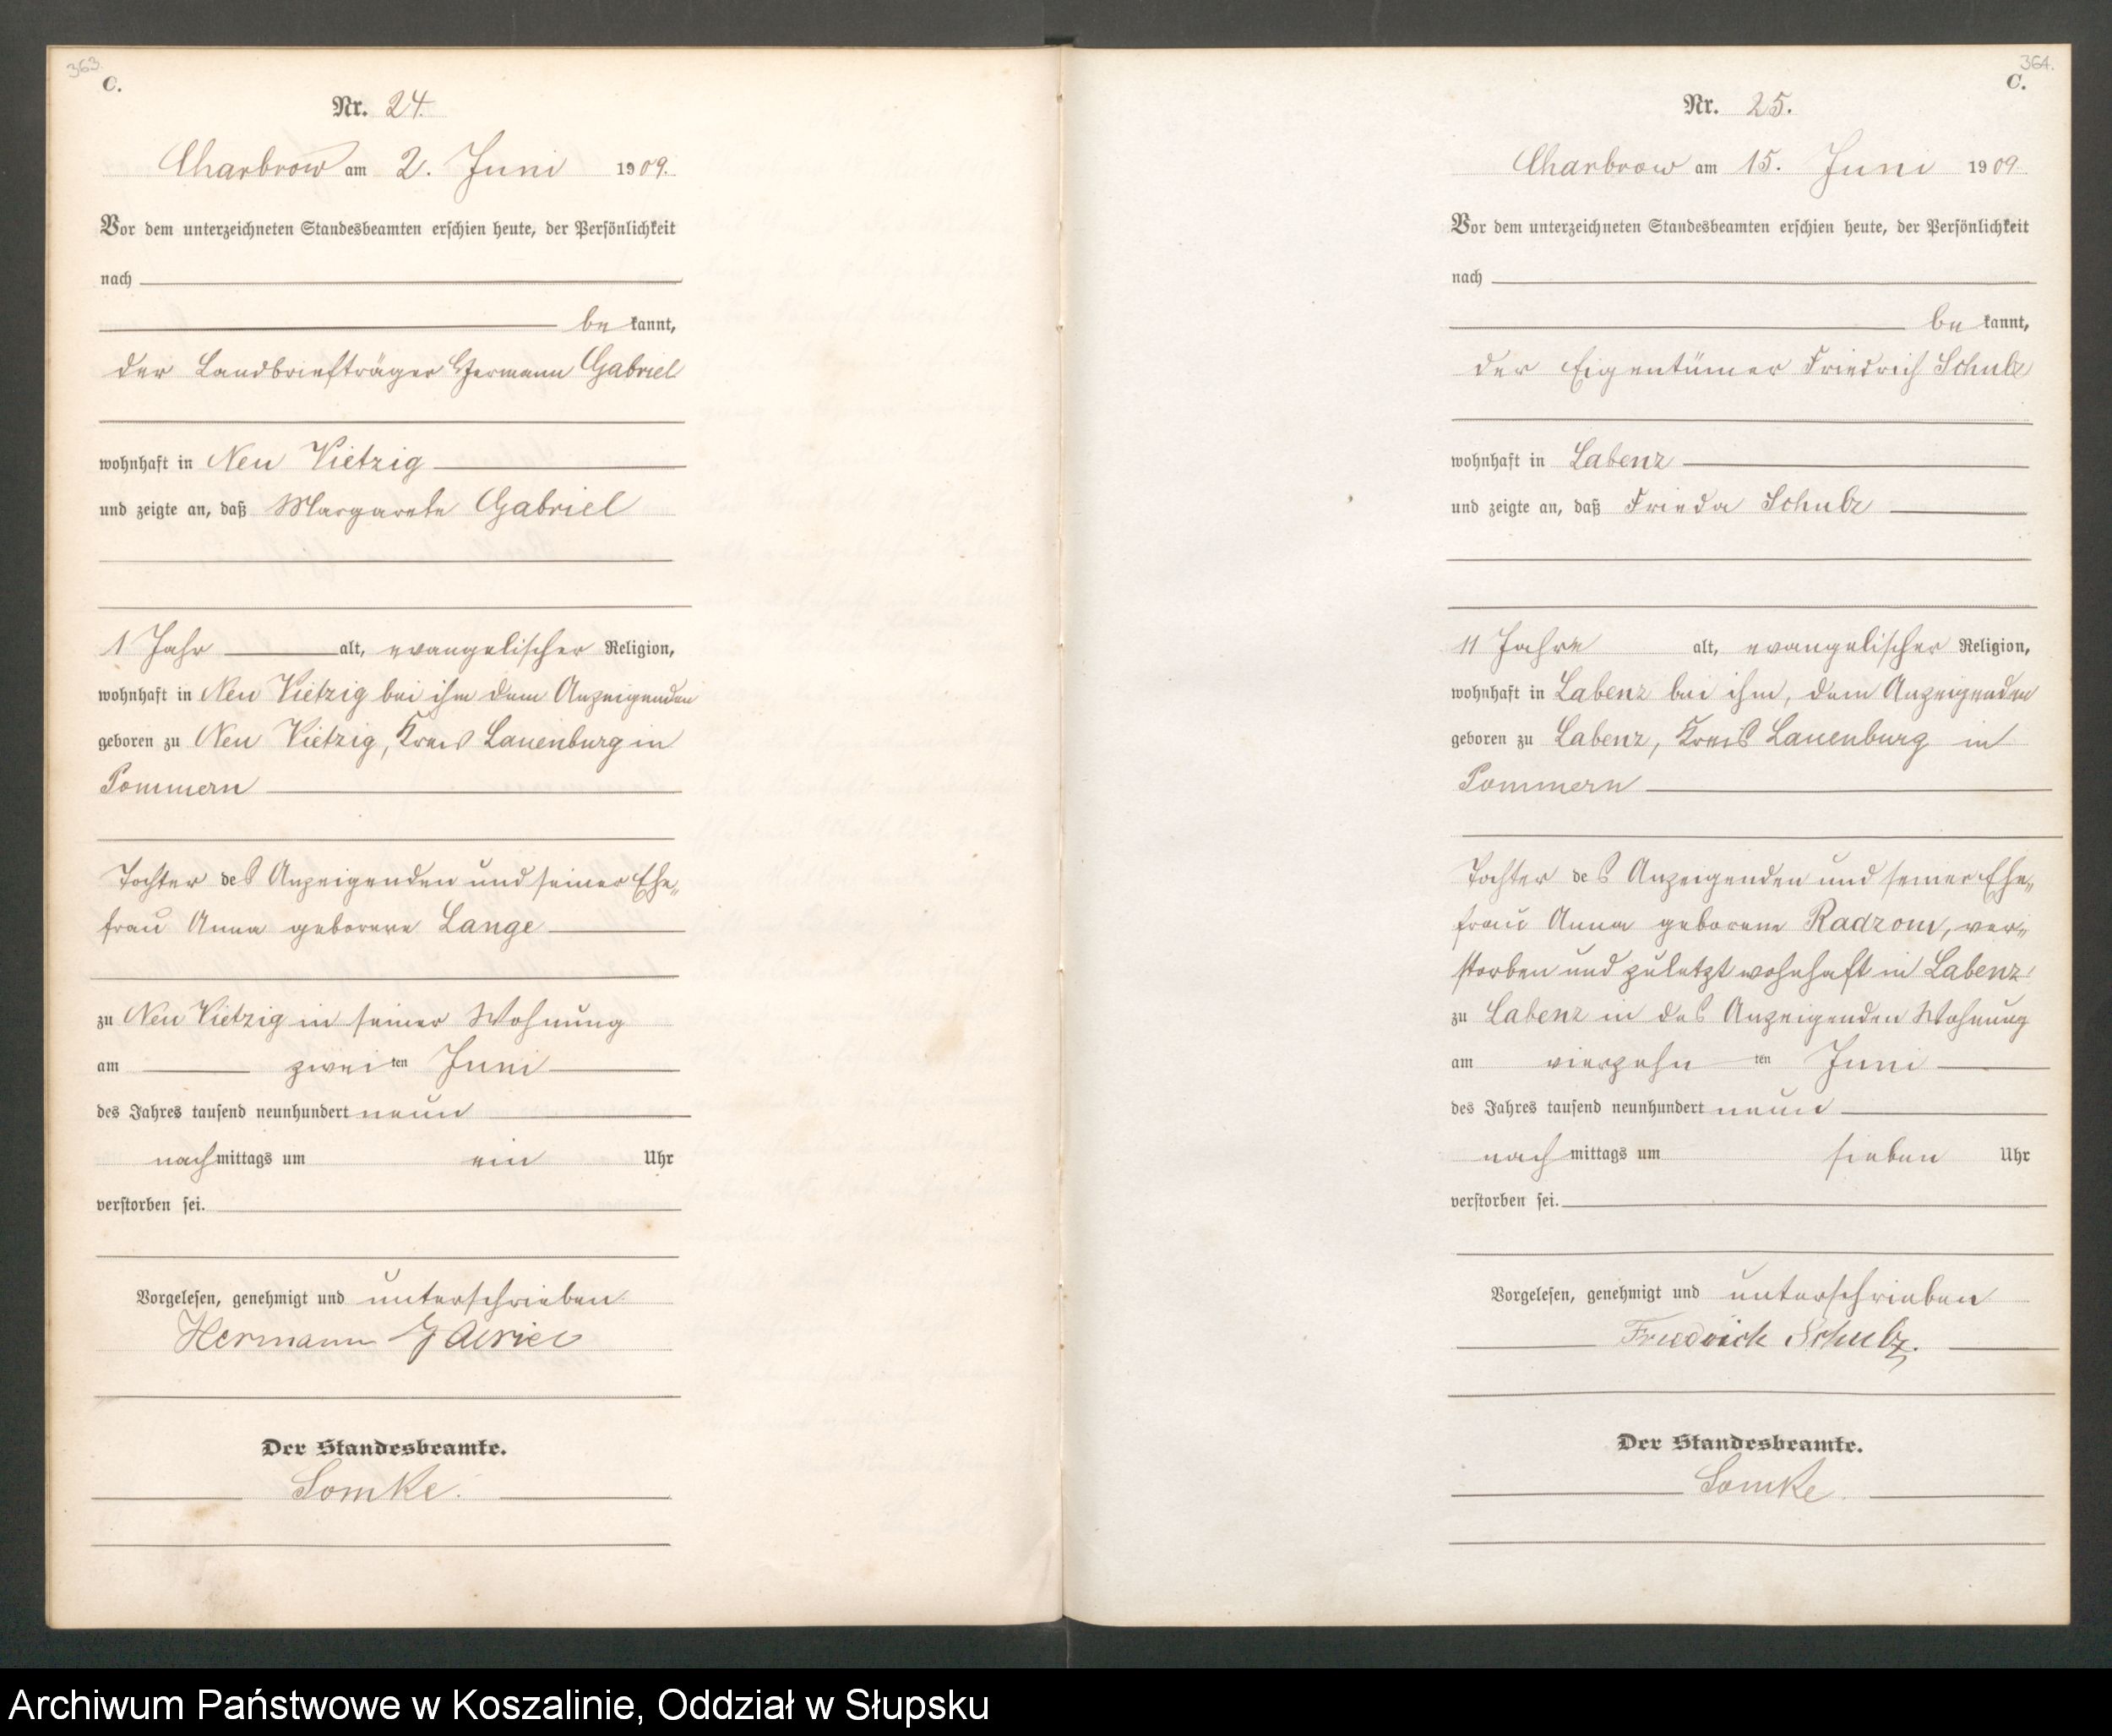 363.
C.
Nr. 24.
Charbrow am 2. Juni 1909.
Vor dem unterzeichneten Standesbeamten erschien heute, der Persönlichkeit
nach
be kannt,
der Landbriefträger Hermann Gabriel
wohnhaft in Neu Vietzig
und zeigte an, daß Margarete Gabriel
1 Jahr alt, evangelischer Religion,
wohnhaft in Neu Vietzig bei ihm dem Anzeigenden
geboren zu Neu Vietzig, Kreis Lauenburg in
Pommern
Tochter des Anzeigenden und seiner Ehe„
frau Anna geborene Lange
zu Neu Vietzig in seiner Wohnung
am zwei ten Juni
des Jahres tausend neunhundert neun
nachmittags um ein Uhr
verstorben sei.
Vorgelesen, genehmigt und unterschrieben
Hermann Gabriel
Der Standesbeamte.
Lomke.
364.
C.
Nr. 25.
Charbrow am 15. Juni 1909
Vor dem unterzeichneten Standesbeamten erschien heute, der Persönlichkeit
nach
be kannt,
der Eigentümer Friedrich Schulz
wohnhaft in Labenz
und zeigte an, daß Frieda Schulz
11 Jahre alt, evangelischer Religion,
wohnhaft in Labenz bei ihm, dem Anzeigenden
geboren zu Labenz, Kreis Lauenburg in
Pommern
Tochter des Anzeigenden und seiner Ehe„
frau Anna geborene Radzom, ver„
storben und zuletzt wohnhaft in Labenz
zu Labenz in des Anzeigenden Wohnung
am vierzehn ten Juni
des Jahres tausend neunhundert neun
nach mittags um sieben Uhr
verstorben sei.
Vorgelesen, genehmigt und unterschrieben
Friedrich Schulz.
Der Standesbeamte.
Lomke.
Archiwum Państwowe w Koszalinie, Oddział w Słupsku